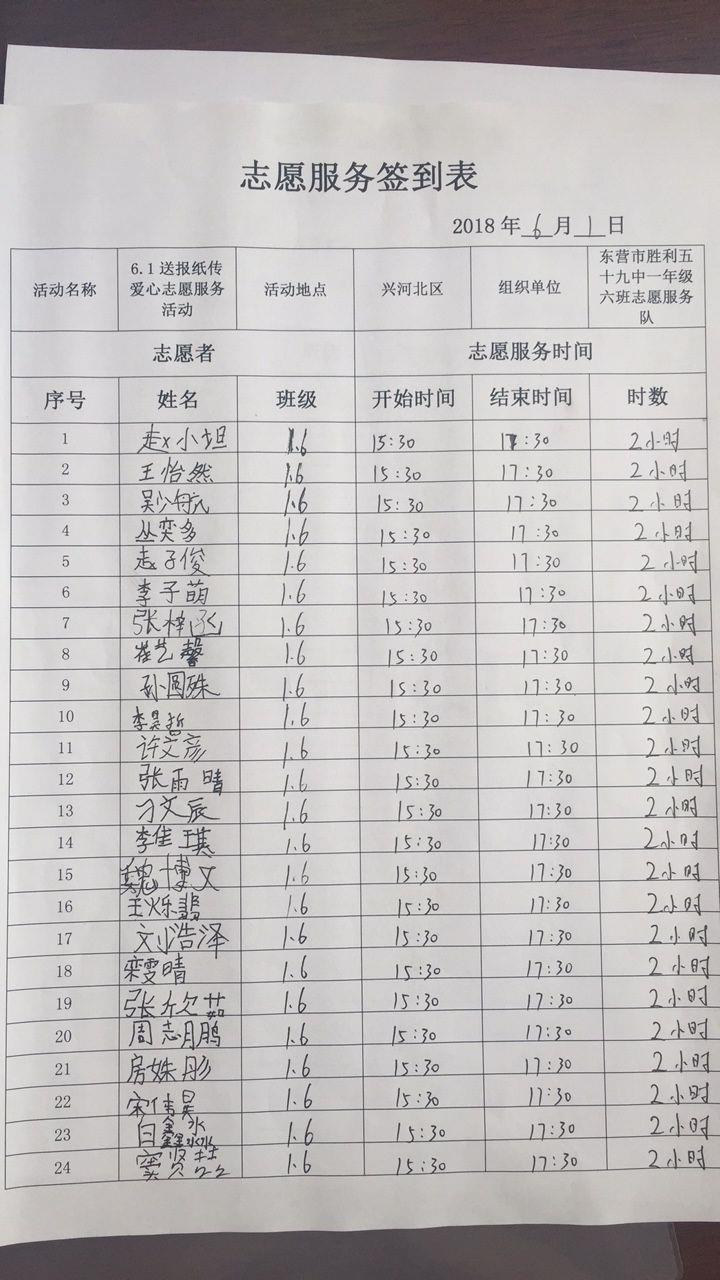 志愿服务签到表
2018 年 6 月 1 日
活动名称 6.1 送报纸传爱心志愿服务活动 活动地点 兴河北区 组织单位 东营市胜利五十九中一年级六班志愿服务队
志愿者 志愿服务时间
序号 姓名 班级 开始时间 结束时间 时数
1 赵小坦 1.6 15:30 17:30 2小时
2 王怡然 1.6 15:30 17:30 2小时
3 1.6 15:30 17:30 2小时
4 丛奕多 1.6 15:30 17:30 2小时
5 赵子俊 1.6 15:30 17:30 2小时
6 李子萌 1.6 15:30 17:30 2小时
7 张梓涵 1.6 15:30 17:30 2小时
8 崔艺馨 1.6 15:30 17:30 2小时
9 孙圆姝 1.6 15:30 17:30 2小时
10 李昊哲 1.6 15:30 17:30 2小时
11 许文彦 1.6 15:30 17:30 2小时
12 张雨晴 1.6 15:30 17:30 2小时
13 刁文辰 1.6 15:30 17:30 2小时
14 李佳琪 1.6 15:30 17:30 2小时
15 魏博文 1.6 15:30 17:30 2小时
16 王烁翡 1.6 15:30 17:30 2小时
17 刘浩泽 1.6 15:30 17:30 2小时
18 栾雯晴 1.6 15:30 17:30 2小时
19 张欣茹 1.6 15:30 17:30 2小时
20 周志鹏 1.6 15:30 17:30 2小时
21 房姝彤 1.6 15:30 17:30 2小时
22 宋伟昊 1.6 15:30 17:30 2小时
23 白鑫淼 1.6 15:30 17:30 2小时
24 窦贤喆 1.6 15:30 17:30 2小时